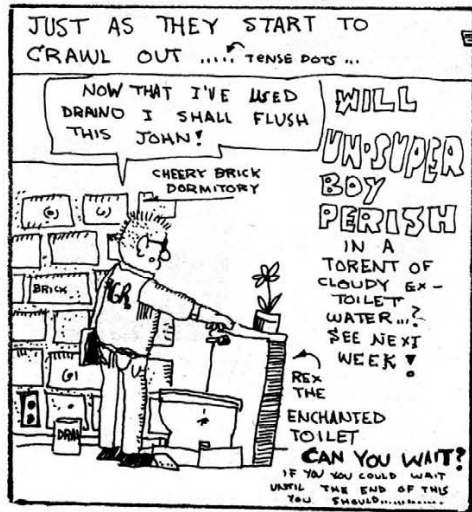 JUST AS THEY START TO
CRAWL OUT ..... TENSE DOTS ...
NOW THAT I'VE USED
DRAINO I SHALL FLUSH
THIS JOHN!
CHEERY BRICK
DORMITORY
WILL
UN-SUPER
BOY
PERISH
IN A
TORENT OF
CLOUDY EX-
TOILET
WATER...?
SEE NEXT
WEEK!
BRICK
GR
DRAI
REX
THE
ENCHANTED
TOILET
CAN YOU WAIT?
IF YOU YOU COULD WAIT
UNTIL THE END OF THIS
YOU SHOULD............